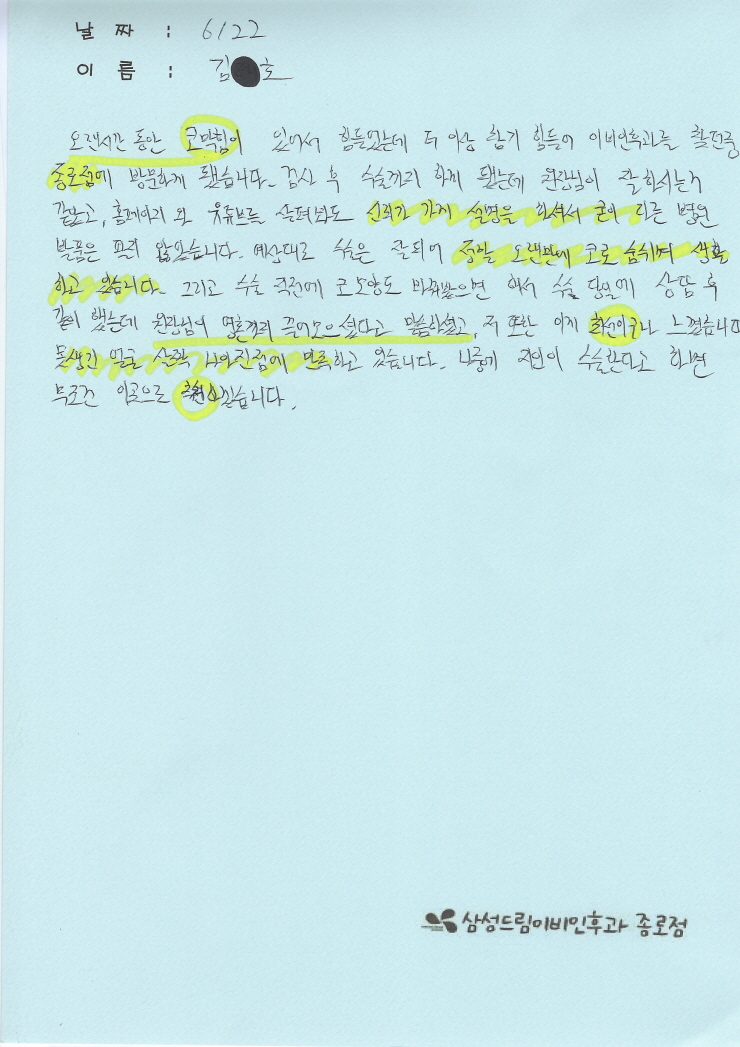 날 짜 : 6/22
이 름 : 김 호
오랜시간 동안 코막힘이 있어서 힘들었는데 더 이상 참기 힘들어 이비인후과를 찾던중
종로점에 방문하게 됐습니다. 검사 후 수술까지 하게 됐는데 원장님이 잘하시는거
같았고, 홈페이지 와 유튜브를 살펴봐도 신뢰가 가게 설명을 하셔서 굳이 다른 병원
발품은 팔지 않았습니다. 예상대로 수술은 잘되어 정말 오랜만에 코로 숨쉬며 생활
하고 있습니다. 그리고 수술 직전에 코모양도 바꿔봤으면 해서 수술 당일에 상담 후
같이 했는데 원장님이 영혼까지 끌어모으셨다고 말씀하셨고, 저 또한 이게 최선이구나 느꼈습니다
못생긴 얼굴 살짝 나아진점에 만족하고 있습니다. 나중에 지인이 수술한다고 하면
무조건 이곳으로 추천 싶습니다.
삼성드림이비인후과 종로점